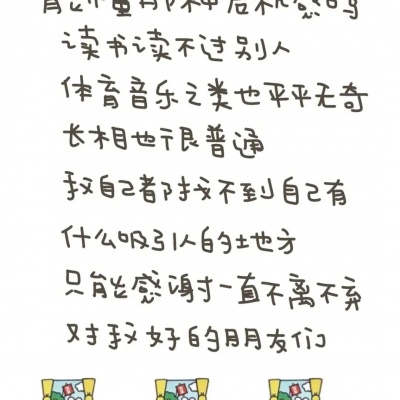 能懂那种危机感吗
读书读不过别人
体育音乐之类也平平无奇
长相也很普通
我自己都找不到自己有
什么吸引人的地方
只能感谢一直不离不弃
对我好的朋友们